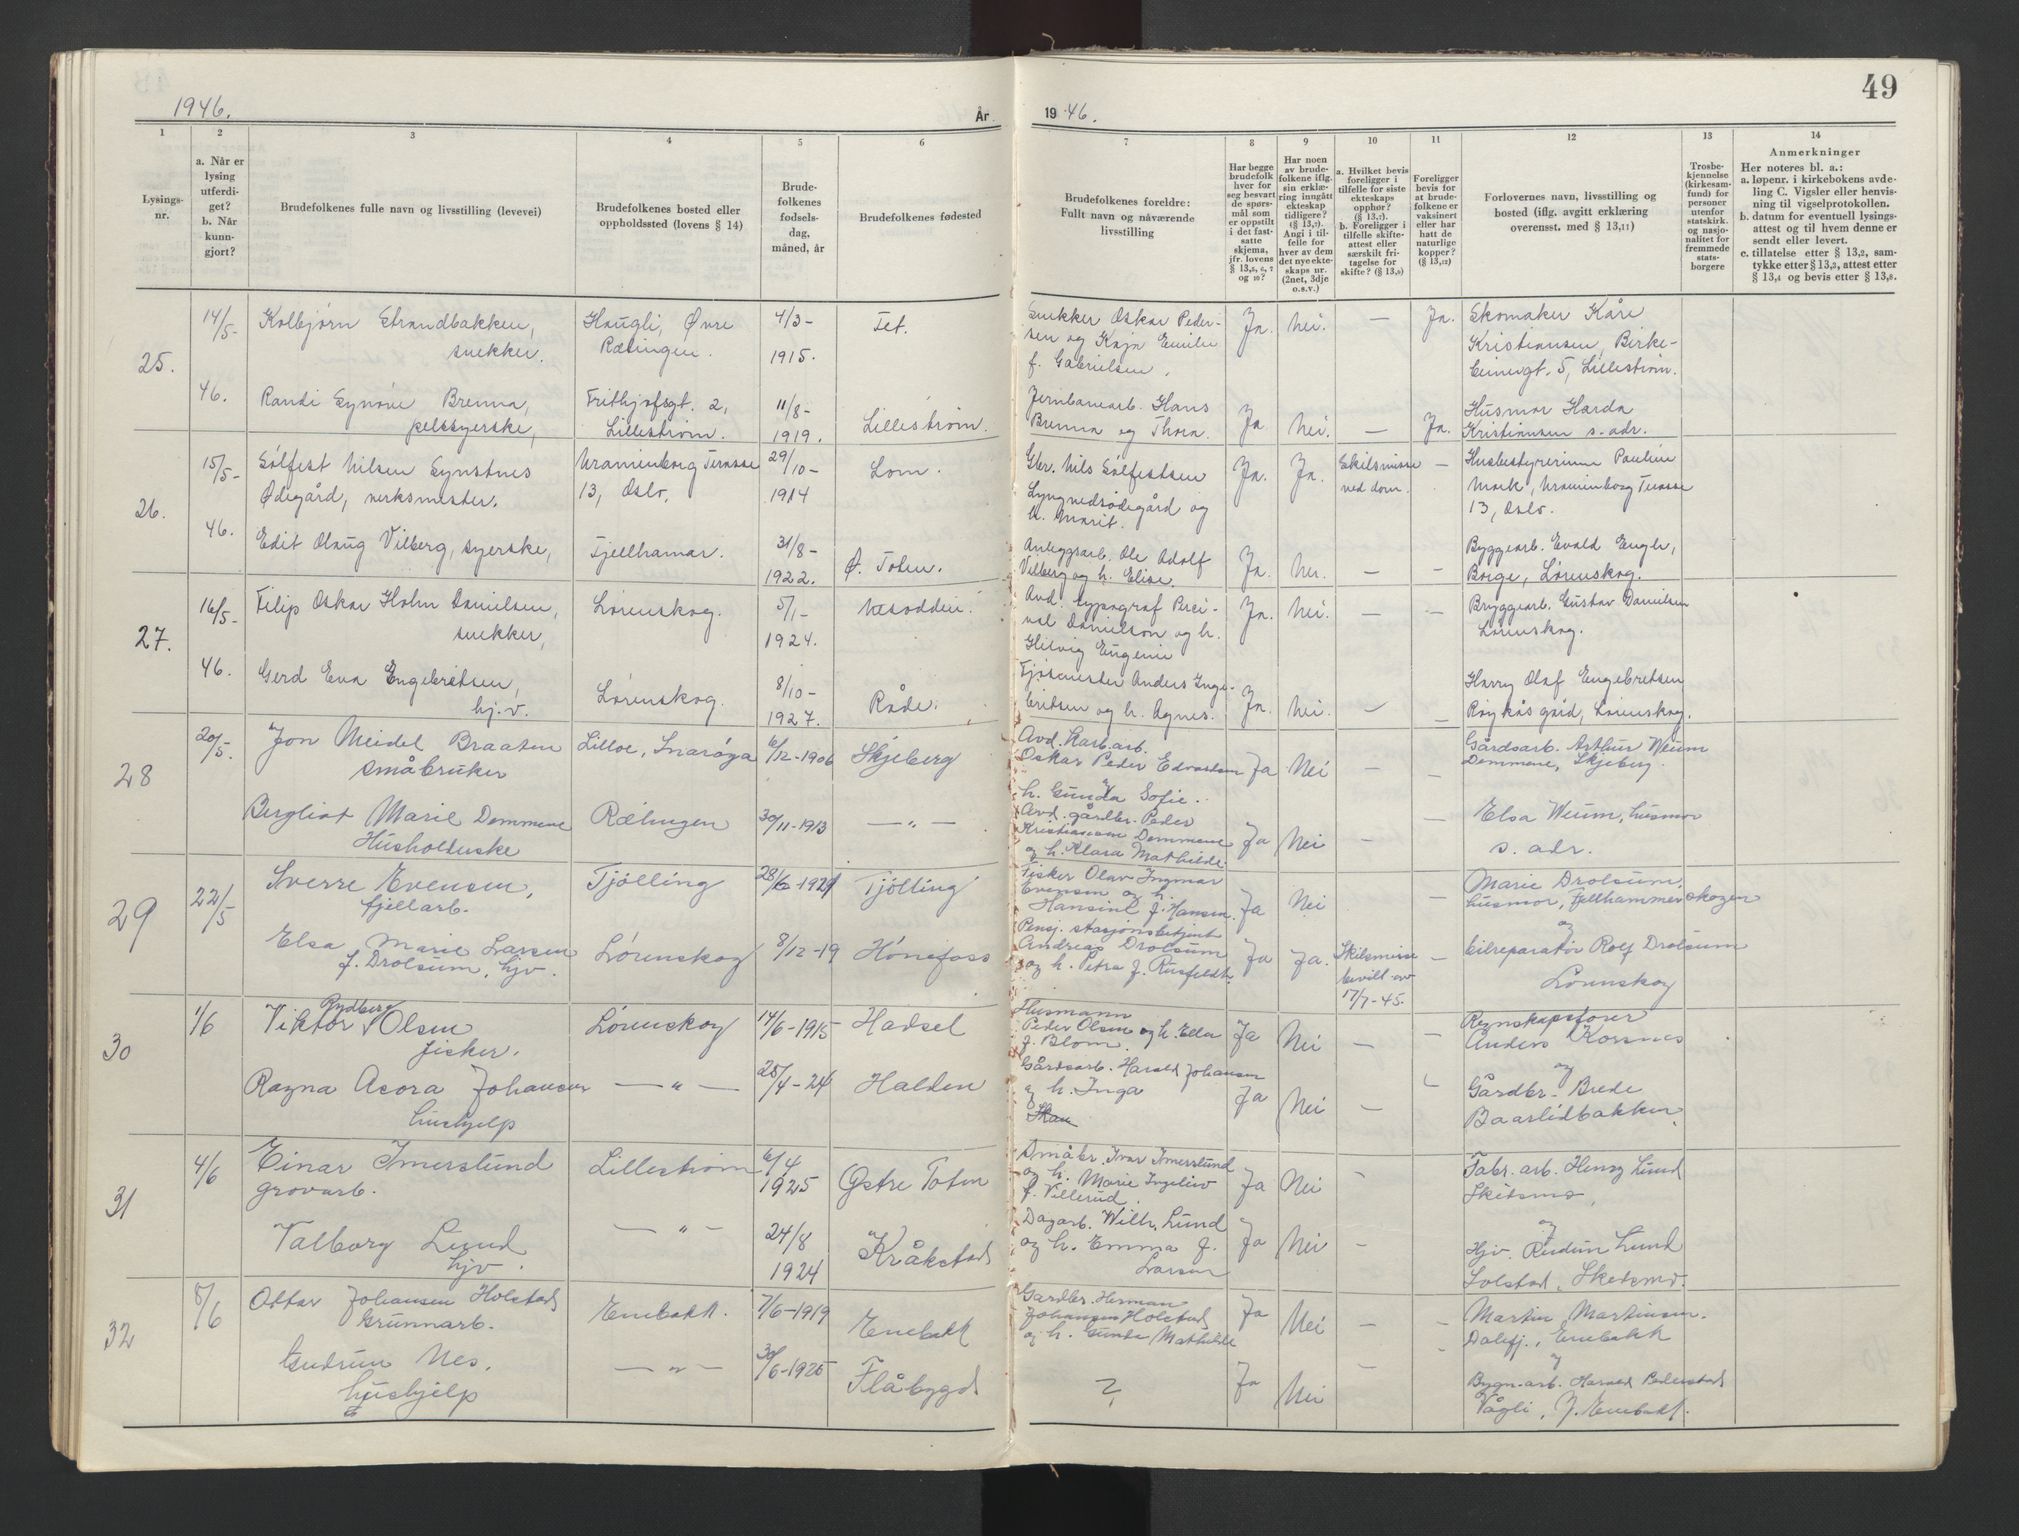 1946.
År
1
2
3
4
5
6
Lysings-
nr.
a. Når er
lysing
utferdi-
get?
b. Når
kunn-
gjort?
Brudefolkenes fulle navn og livsstilling (levevei)
Brudefolkenes bosted eller
oppholdssted (lovens § 14)
Brude-
folkenes
fødsels-
dag,
måned, år
Brudefolkenes fødested
25.
14/5-
46.
Kolbjørn Strandbakken,
snekker.
Haugli, Øvre
Rælingen.
4/3-
1915.
Fet.
Randi Synøve Brenna,
pelssyerske,
Frithjofsgt. 2,
Lillestrøm.
11/8-
1919.
Lillestrøm.
26.
15/5-
46.
Sólfest Nilsen Synstnes
Ødegård, verksmester.
Uranienborg Terasse
13, Oslo.
29/10-
1914
Lom.
Edit Olaug Vilberg, syerske,
Fjellhamar.
31/8-
1922.
Ø. Toten.
27.
16/5-
46.
Filip Oskar Holm Danielsen,
snekker,
Lørenskog.
5/1-
1924.
Nesodden.
Gerd Eva Engebretsen,
hj.v.
Lørenskog.
8/10-
1927.
Råde.
28
20/5.
Jon Meidel Braaten
småbruker
Lilloe, Snarøya
6/12-1906
Skjeberg
Bergliot Marie Demmene
Husholderske
Rælingen
30/11-1913
—"—
29
22/5
Sverre Evensen,
fjellarb.
Tjölling
28/6-1921
Tjölling
Elsa Marie Larsen
f. Drolsum, hjv.
Lørenskog
8/12-19
Hönefoss
30
1/6
Rydberg
Viktor √ Olsen
fisker.
Lørenskog
14/6-1915
Hadsel
Ragna Acora Johansen
hushjelp
—"—
25/4-24
Halden
31
4/6
Einar Imerslund
grovarb.
Lillestrøm
6/4
1925
Østre Toten
Valborg Lund
hjv.
—"—
24/8
1924
Kråkstad
32
8/6
Ottar Johansen Holstad
Grunnarb.
Enebakk.
7/6-1919
Enebakk
Gudrun Nes.
hushjelp
—"—
30/6-1925
Flåbygd
49
1946.
7
8
9
10
11
12
13
14
Brudefolkenes foreldre:
Fullt navn og nåværende
livsstilling
Har begge
brudefolk
hver for
seg besvart
de spørs-
mål som
er oppstilt
i det fast-
satte
skjema,
jfr. lovens
§ 13,5, 6, 7
og 10?
Har noen
av brude-
folkene iflg.
sin erklæ-
ring inngått
ekteskap
tidligere?
(§ 13,7).
Angi i til-
felle for
hver av dem
det nye ekte-
skaps nr.
(2net, 3dje
o.s.v.)
a. Hvilket bevis
foreligger i
tilfelle for siste
ekteskaps
opphør?
(§ 13,7).
b. Foreligger i
tilfelle skifte-
attest eller
særskilt fri-
tagelse for
skifte? (§ 13,9)
Foreligger
bevis for
at brude-
folkene er
vaksinert
eller har
hatt de
naturlige
kopper?
(§ 13,12)
Forlovernes navn, livsstilling og
bosted (iflg. avgitt erklæring
overensst. med § 13,11)
Trosbe-
kjennelse
(kirkesam-
fund) for
personer
utenfor
statskirk.
og nasjo-
nalitet for
fremmede
stats-
borgere
Anmerkninger
Her noteres bl. a.:
a. løpenr. i kirkebokens avde-
ling C. Vigsler eller henvis-
ning til vigselprotokollen.
b. datum for eventuell lysings-
attest og til hvem denne er
sendt eller levert.
c. tillatelse etter § 13,2, sam-
tykke etter § 13,3, attest etter
§ 13,4 og bevis etter § 13,8.
Snekker Oskar Peder-
sen og Kaja Emilie
f. Gabrielsen.
Ja.
Nei.
—
Ja.
Skomaker Kåre
Kristiansen, Birke-
beinergt. 5, Lillestrøm.
Jernbanearb. Hans
Brenna og Thora.
Ja
Nei.
—
Ja.
Husmor Harda
Kristiansen s. adr.
Gbr. Nils Sólfestsen
Lyngvedsødegård og
h. Marit.
Ja.
Ja.
Skilsmisse
ved dom.
—
Husbestyrerinne Pauline
Mork, Uranienborg Terasse
13, Oslo.
Anleggsarb. Ole Adolf
Vilberg og h. Elise.
Ja.
Nei.
—
—
Byggearb. Evald Engh,
Borge, Lørenskog.
Avd. typograf Perci-
val Danielsen og h.
Hilvig Eugenie
Ja.
Nei.
—
—
Bryggearb. Gustav Danielsen
Lørenskog.
Fjösmester Anders Enge-
bretsen og h. Agnes.
Ja.
Nei.
—
—
Harry Olaf Engebretsen
Røykås gård, Lørenskog.
Avd. Karb.arb.
Oskar Peder Edvardsen
h. Gunda Sofie.
Ja
Nei
—
—
Gårdsarb. Arthur Weum
Demmene, Skjeberg.
Avd. gårdbr. Peder
Kristiansen Demmene
og h. Klara Mathilde.
Ja
Nei
—
—
Elsa Weum, husmor
s. adr.
Fisker Olav Ingmar
Evensen og h.
Hansine f. Hansen.
Ja
Nei
—
Marie Drolsum,
husmor, Fjellhammerskogen
og
Pensj. stasjonsbetjent
Andreas Drolsum
og h. Petra f. Rusfeldt.
Ja
Ja.
Skilsmisse
bevill. av
17/7-45.
—
bilreparatør Rolf Drolsum
Lørenskog
Husmann
Peder Olsen og h. Ella
f. Blom.
Ja
Nei
—
—
Regnskapsfører
Anders Korsnes
og
Gårdsarb. Harald Johansen
og h. Inga
Skau
Ja
Nei
—
Gårdbr. Brede
Baarlidbakken.
Småbr. Ivar Imerslund
og h. Marie Ingeliev
f. Villerud.
Ja
Nei
—
Fabr. arb. Henry Lund
Skedsmo,
og
Dagarb. Wilh. Lund
og h. Emma f.
Larsen
Ja
Nei
—
Hjv. Reidun Lund
Solstad, Skedsmo.
Gardbr. Herman
Johansen Holstad
og h. Gunda Mathilde
Ja
Nei
—
—
Martin Martinsen.
Dalefj., Enebakk
og
?
Ja
Nei
—
Bygn.arb. Harald Pederstad
Vågli, Y. Enebakk.